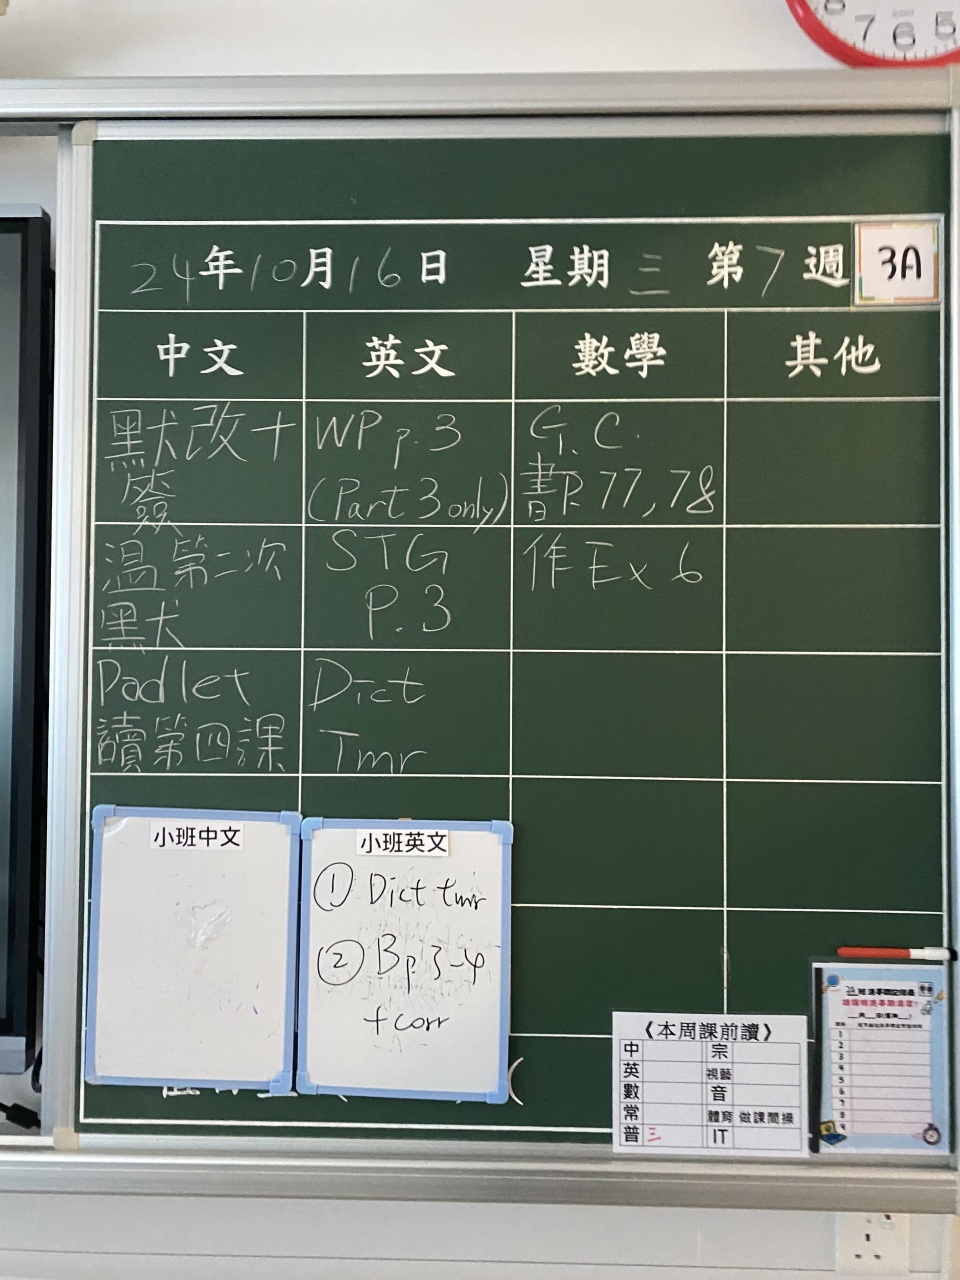 8 7 6 5
24年10月16日 星期三 第7週 3A
中文 英文 數學 其他
默改十
簽
WP p.3
(Part 3 only)
G.C.
書P.77,78
温第二次
默
STG
P.3
作Ex 6
Padlet
讀第四課
Dict
Tmr
小班中文
小班英文
① Dict tmr
② B p.3-4
+corr
《本周課前讀》
中 宗
英 視藝
數 音
常 體育 做課間操
普 三 IT
1
2
3
4
5
6
7
8
9